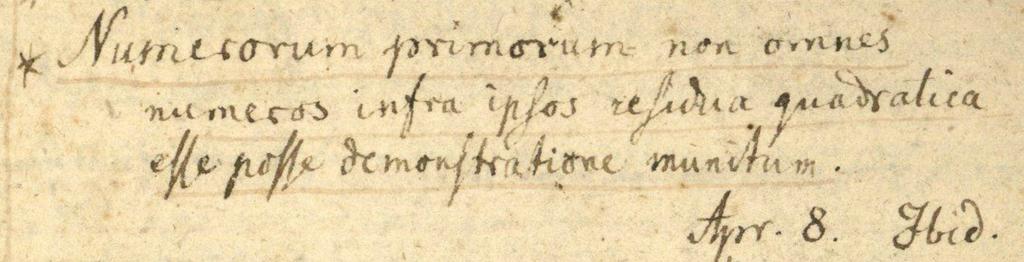 * Numerorum primorum non omnes
numeros infra ipsos residua quadratica
esse posse demonstratione munitum.
Apr. 8. Ibid.